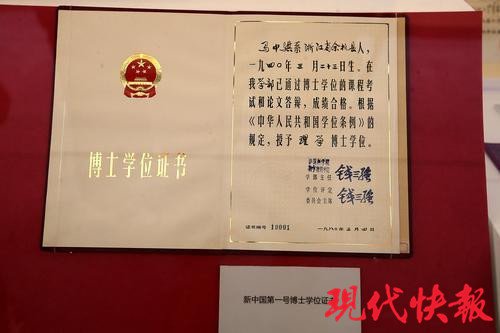 博士学位证书
马中骐系浙江省余杭县人，
一九四〇年三月二十三日生。在
我学部已通过博士学位的课程考
试和论文答辩，成绩合格。根据
《中华人民共和国学位条例》的
规定，授予 理学 博士学位。
学部主任 钱三强
学位评定
委员会主席 钱三强
证书编号 10001
新中国第一号博士学位证
现代快報